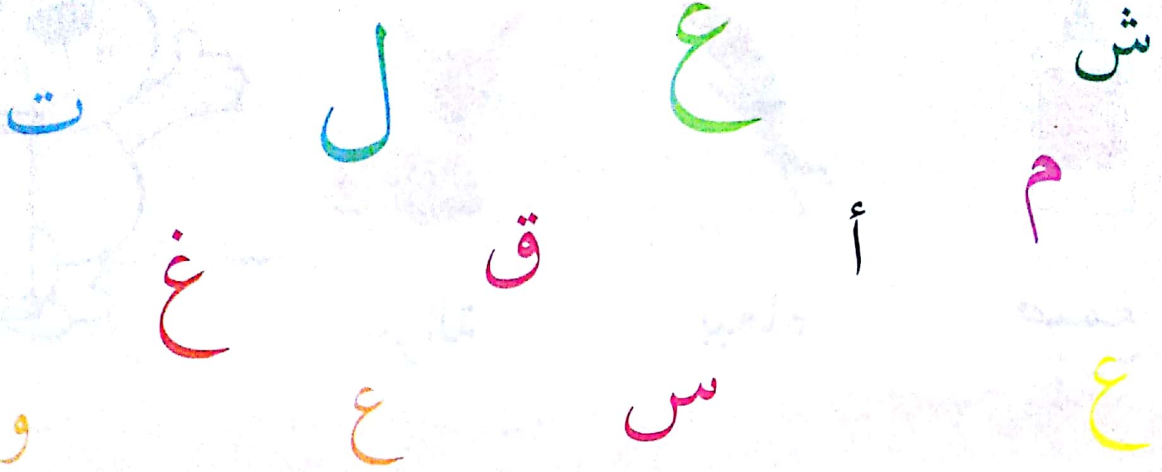 ش ع ل ت
م أ ق غ
ع س ع و